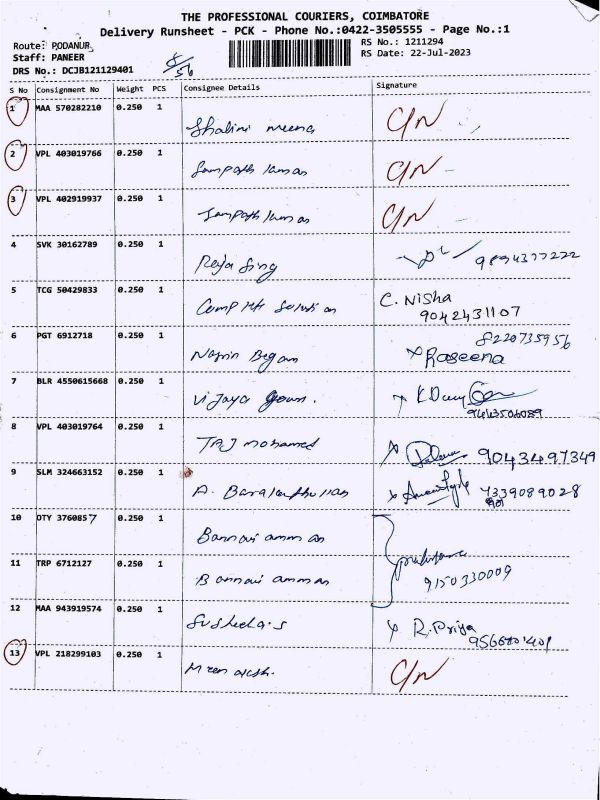 THE PROFESSIONAL COURIERS, COIMBATORE
Delivery Runsheet - PCK - Phone No.:0422-3505555 - Page No.:1
Route: PODANUR
RS No.: 1211294
Staff: PANEER
RS Date: 22-Jul-2023
DRS No.: DCJB121129401
S No Consignment No Weight PCS Consignee Details Signature
1 MAA 570282210 0.250 1 Shalini meena C/N
2 VPL 403019766 0.250 1 Sampath kumar C/N
3 VPL 402919937 0.250 1 Sampath kumar C/N
4 SVK 30162789 0.250 1 Raja Sing 9894377222
5 TCG 50429833 0.250 1 Solution C. Nisha
9042431107
6 PGT 6912718 0.250 1 Nasrin Began 8220735956
Raseena
7 BLR 4550615668 0.250 1 Vijaya
9443506089
8 VPL 403019764 0.250 1 TAJ mohamed 9043497349
9 SLM 324663152 0.250 1 A. 7339089028
10 OTY 3760857 0.250 1 Bannari amman
11 TRP 6712127 0.250 1 Bannari amman 9150330009
12 MAA 943919574 0.250 1 Susheela.s R.Priya
9566801401
13 VPL 218299103 0.250 1 C/N